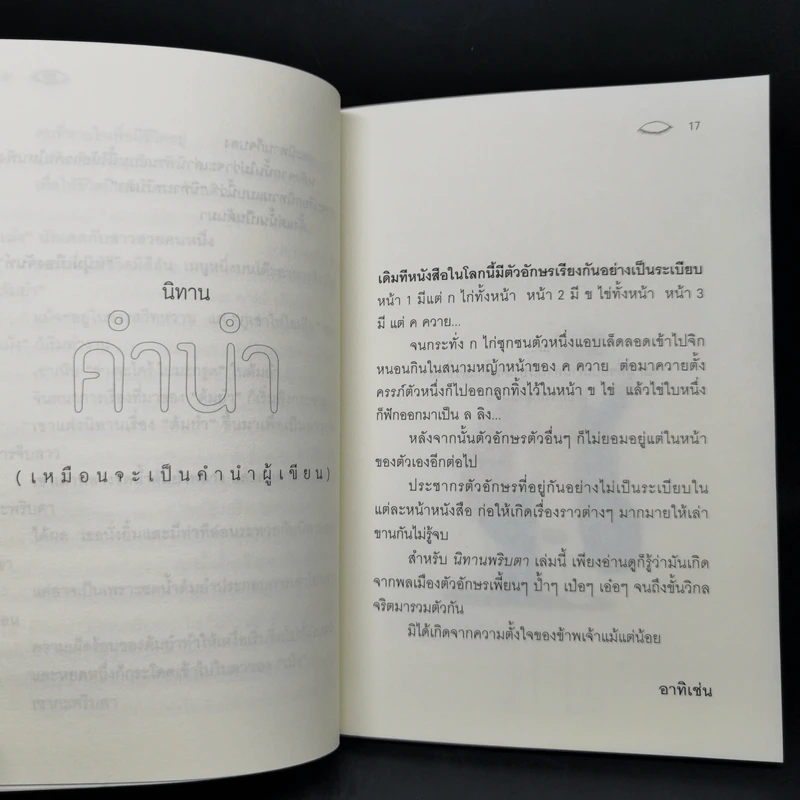 นิทาน
คำนำ
(เหมือนจะเป็นคำนำผู้เขียน)
17
เดิมทีหนังสือในโลกนี้มีตัวอักษรเรียงกันอย่างเป็นระเบียบ
หน้า 1 มีแต่ ก ไก่ทั้งหน้า หน้า 2 มี ข ไข่ทั้งหน้า หน้า 3
มี แต่ ค ควาย...
จนกระทั่ง ก ไก่ซุกซนตัวหนึ่งแอบเล็ดลอดเข้าไปจิก
หนอนกินในสนามหญ้าหน้าของ ค ควาย ต่อมาควายตั้ง
ครรภ์ตัวหนึ่งก็ไปออกลูกทิ้งไว้ในหน้า ข ไข่ แล้วไข่ใบหนึ่ง
ก็ฟักออกมาเป็น ล ลิง...
หลังจากนั้นตัวอักษรตัวอื่นๆ ก็ไม่ยอมอยู่แต่ในหน้า
ของตัวเองอีกต่อไป
ประชากรตัวอักษรที่อยู่กันอย่างไม่เป็นระเบียบใน
แต่ละหน้าหนังสือ ก่อให้เกิดเรื่องราวต่างๆ มากมายให้เล่า
ขานกันไม่รู้จบ
สำหรับ นิทานพริบตา เล่มนี้ เพียงอ่านดูก็รู้ว่ามันเกิด
จากพลเมืองตัวอักษรเพี้ยนๆ ป้ำๆ เป๋อๆ เอ๋อๆ จนถึงขั้นวิกล
จริตมารวมตัวกัน
มิได้เกิดจากความตั้งใจของข้าพเจ้าแม้แต่น้อย
อาทิเช่น